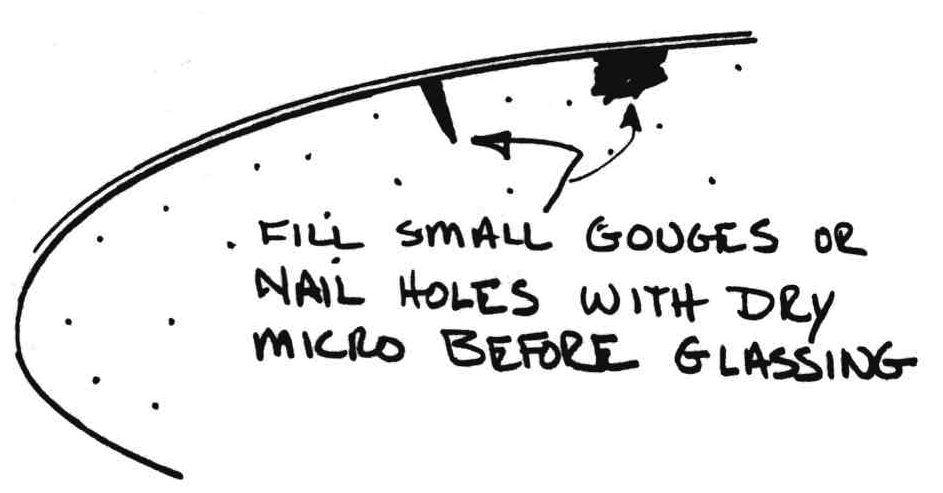 FILL SMALL GOUGES OR
NAIL HOLES WITH DRY
MICRO BEFORE GLASSING